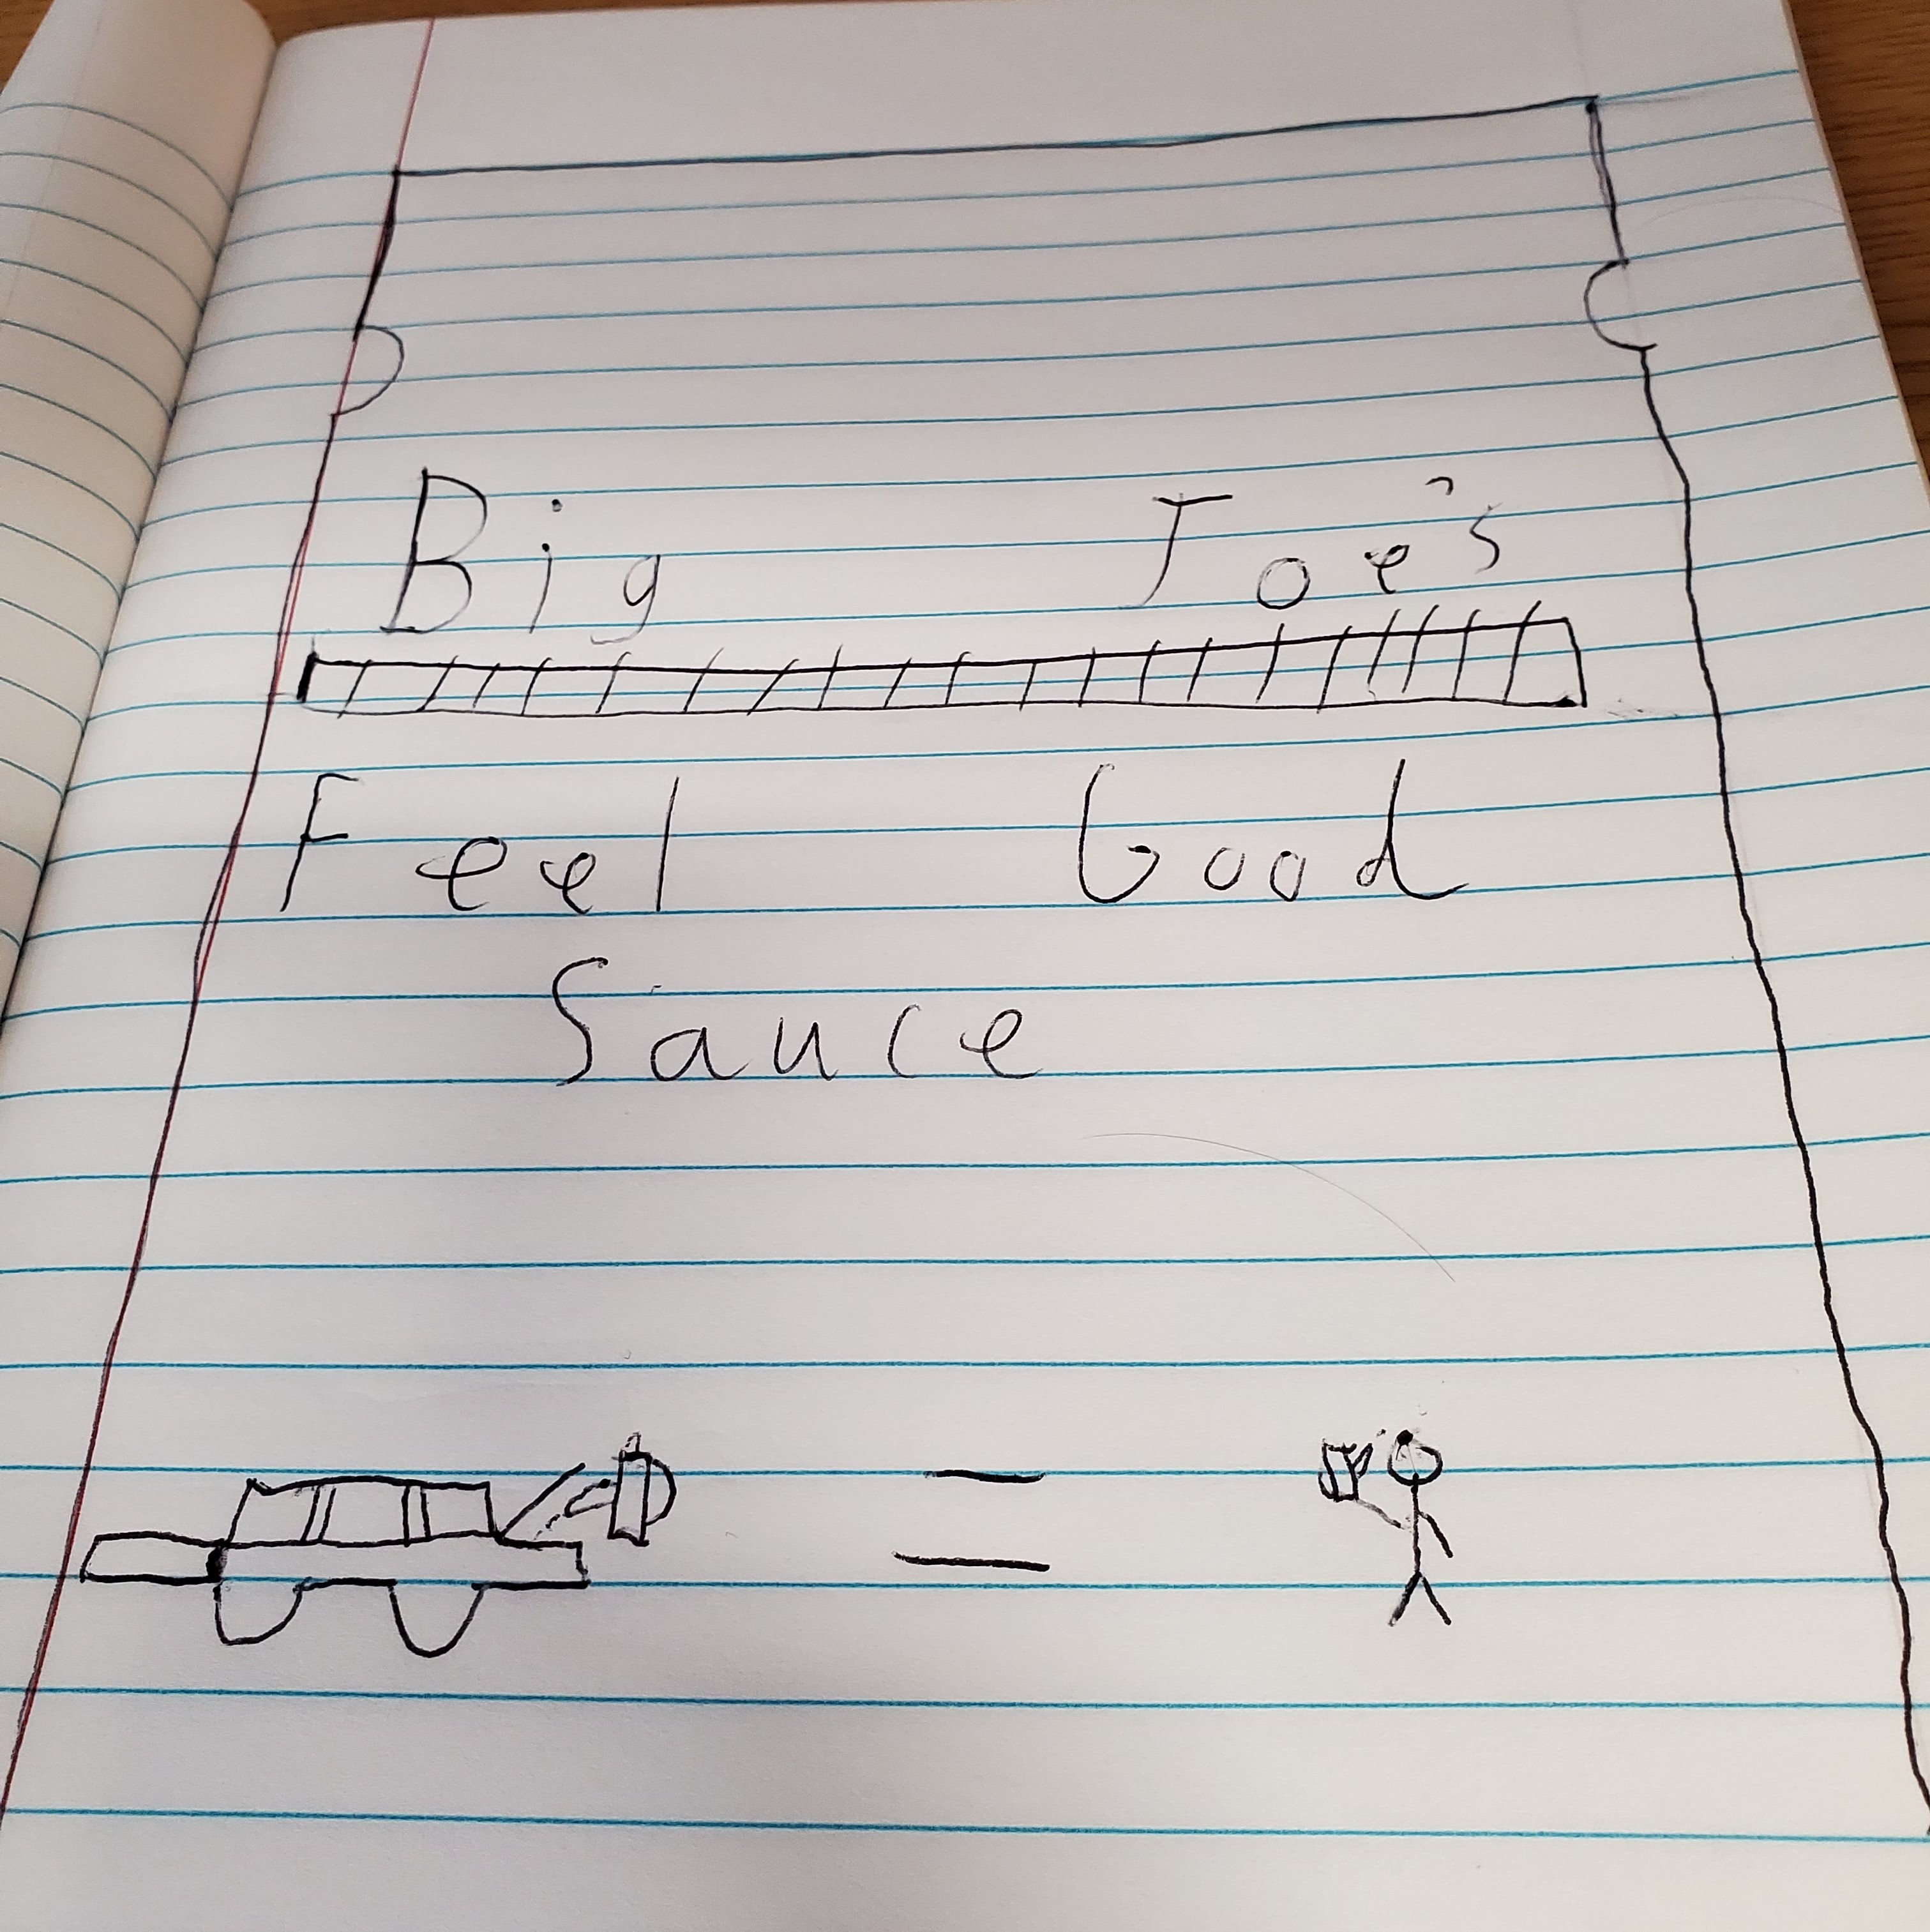 Big Joe's
Feel Good
Sauce